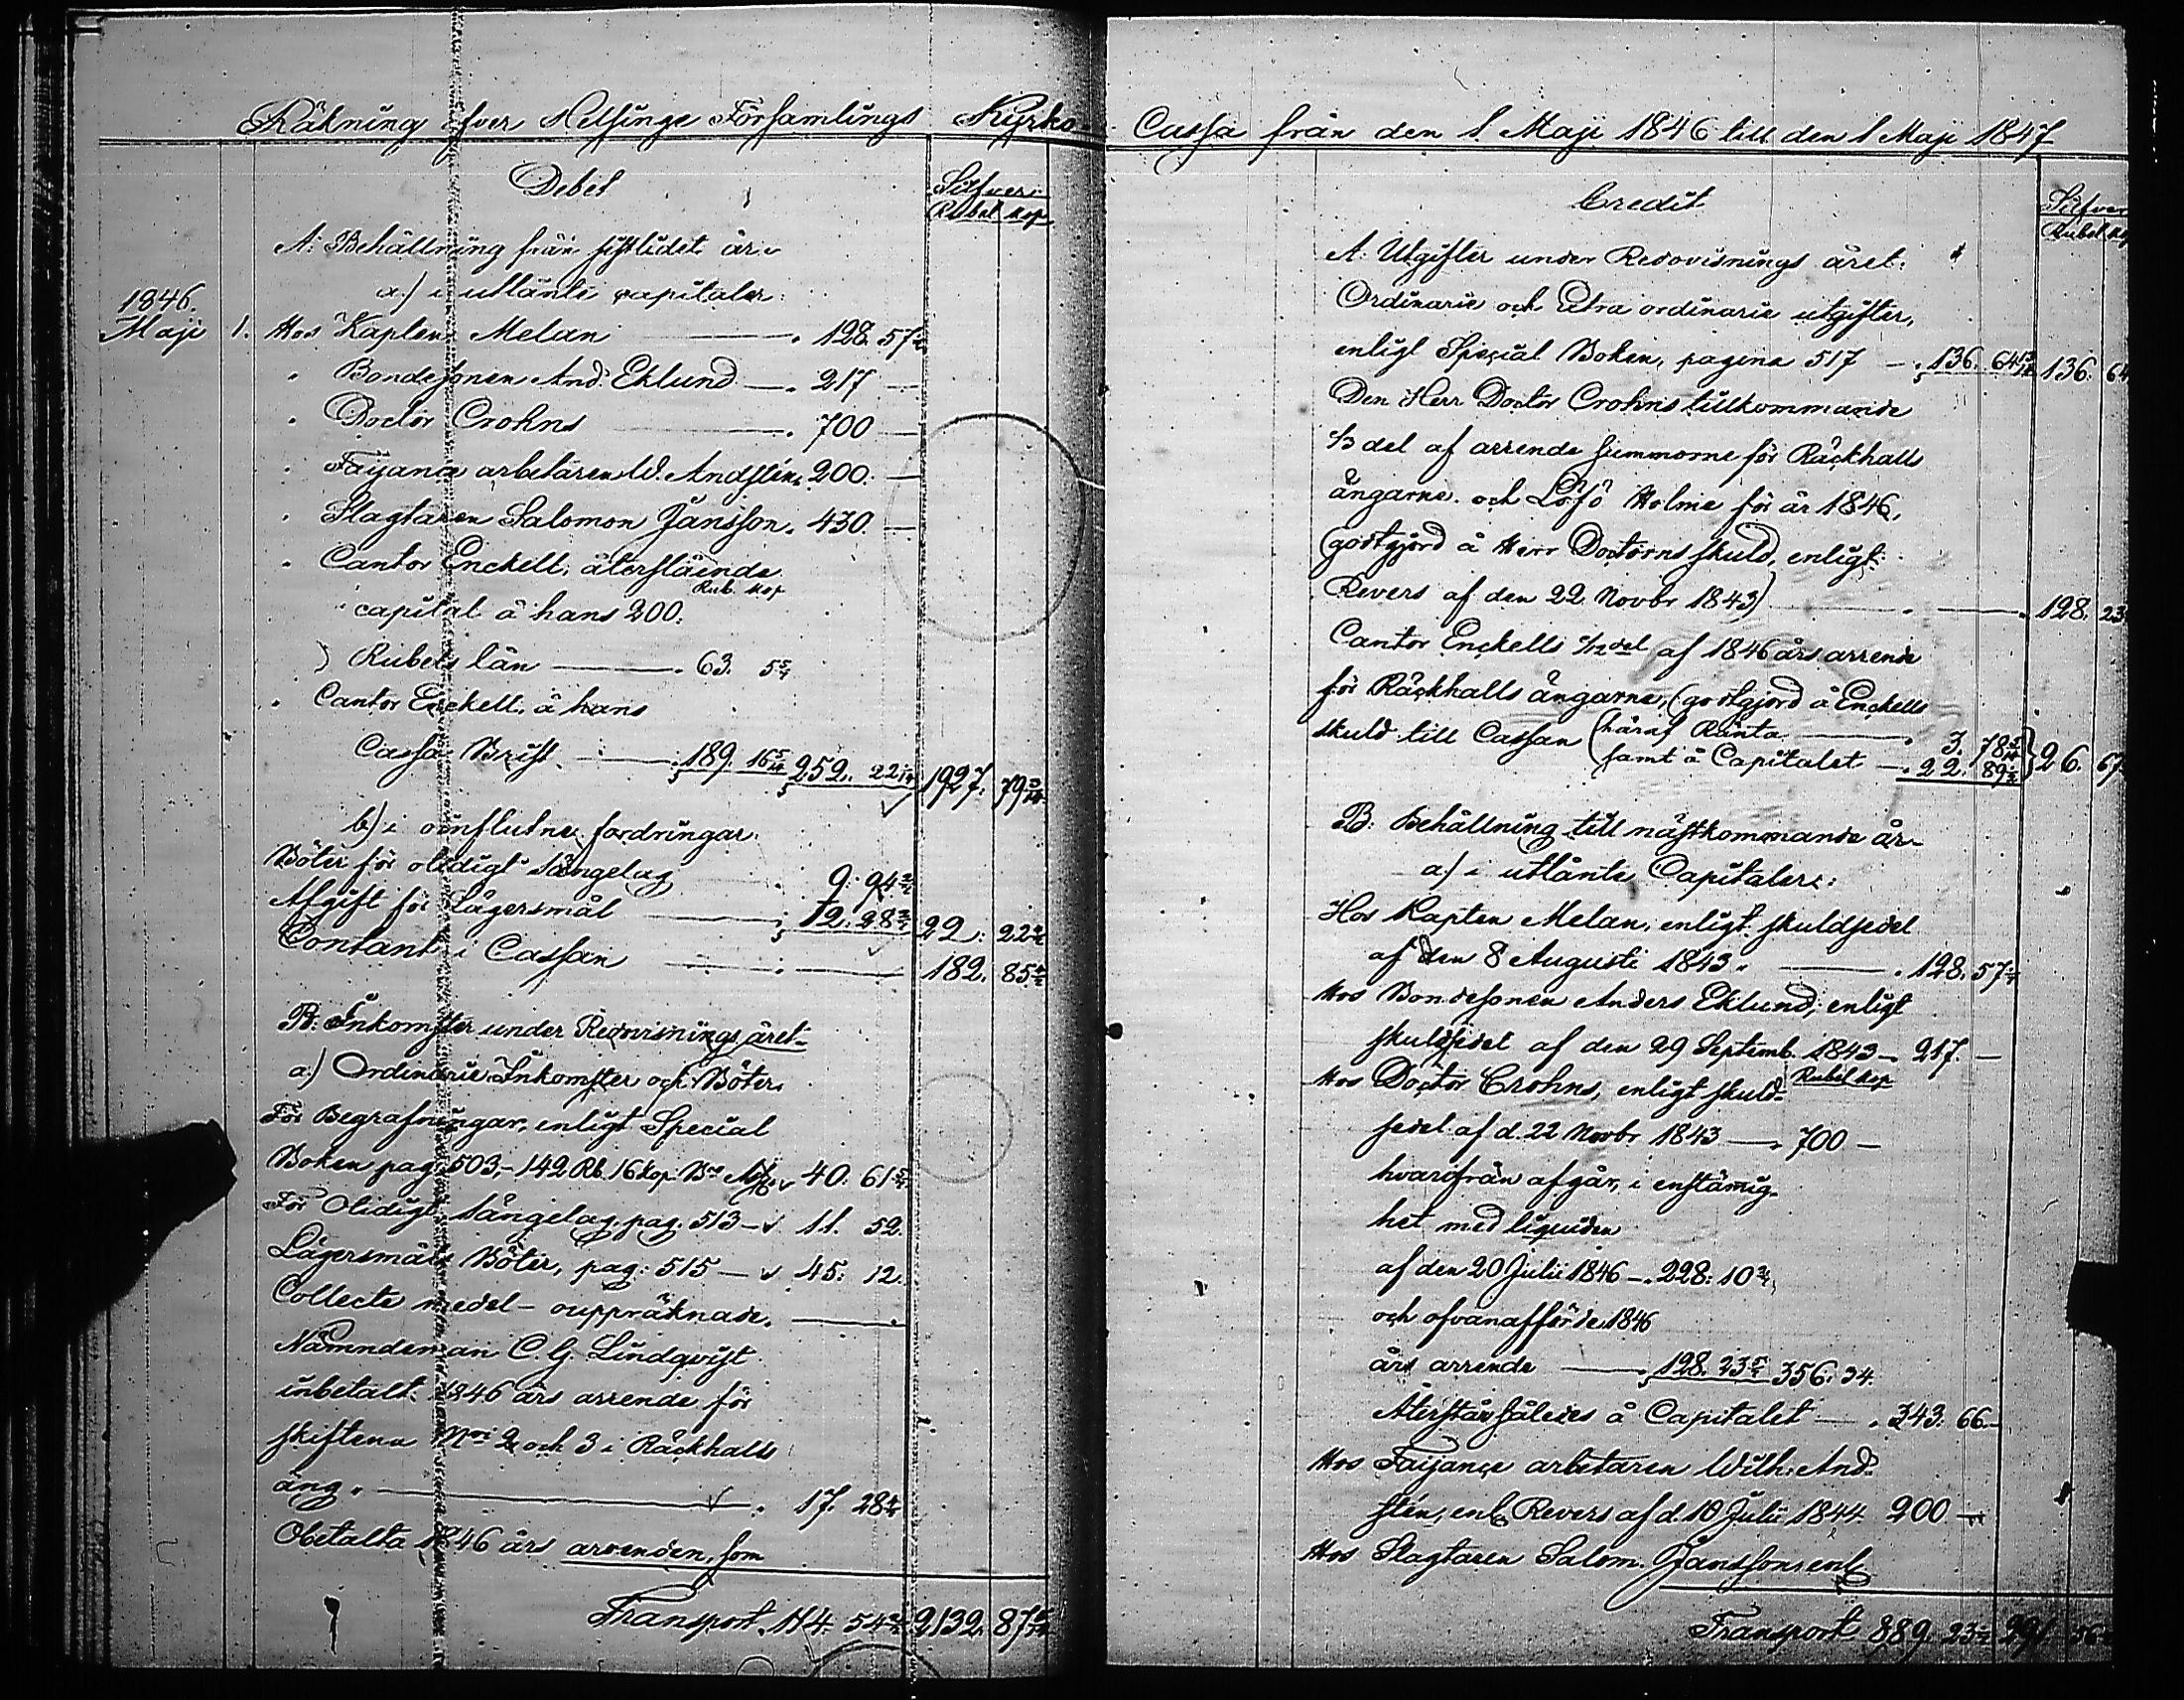 Räkning öfver Helsinge Församlings Kyrko-
Debet
Silfver
Rubel kop
A: Behållning från sistlidet år
a.) i utlänte capitaler:
1846.
Maji 1. Hos Kapten Melan 128. 57 1/7
" Bondesonen And: Eklund 217 —
" Doctor Crohns 700 —
" Fayance arbetaren W. Andstén 200. —
" Slagtaren Salomon Jansson 430. —
" Cantor Enckell, återstående
Rub. kop
capital å hans 200.
Rubels lån 63. 5 5/7
" Cantor Enckell, å hans
Cassa Brist 189. 16 5/14 252. 22 1/14 1927. 79 3/14
b) i oinflutne fordringar:
Böter för olidigt Sängelag 9. 94 2/7
Afgift för Lägersmål 12. 28 3/7 22. 22 5/7
Contant i Cassan 182. 85 5/7
B: Inkomster under Redovisnings året
a) Ordinarie Inkomster och Böter
För Begrafningar, enligt Special
Boken pag. 503,- 142 Rb. 16 kop. Bco 40. 61 5/7
För Olidigt Sängelag, pag. 513 - 11. 52.
Lägersmåls Böter, pag: 515 - 45: 12.
Collecte medel - oupräknade.
Nämndeman C. G. Lindqvist
inbetalt 1846 års arrende för
skiftena Nris 2 och 3 i Räckhalls
äng 17. 28 4/7
Obetalta 1846 års arrenden, som
Transport. 114. 54 2/7 2132. 87
Cassa från den 1 Maji 1846 till den 1 Maji 1847
Credit
Silfver
Rubel kop
A: Utgifter under Redovisnings året:
Ordinarie och Extra ordinarie utgifter,
enligt Special Boken, pagina 517 - 136. 64 136. 64
Den Herr Doctor Crohns tillkommande
1/3 del af arrende summorne för Räckhalls
ängarne och Löfö Holme för år 1846,
(godtgjord å Herr Doctorns skuld, enligt
Revers af den 22 Novbr 1843) 128. 23
Cantor Enckells 1/12 del af 1846 års arrende
för Räckhalls ängarne, (godtgjord å Enckells
skuld till Cassan (häraf Ränta 3. 78
samt å Capitalet 22. 89 26. 67
B: Behållning till nästkommande år
a) i utlånte Capitaler:
Hos Kapten Melan, enligt skuldsedel
af den 8 Augusti 1843 128. 57 1/7
Hos Bondesonen Anders Eklund, enligt
skuldsedel af den 29 Septemb. 1843 - 217. —
Rubel kop
Hos Doctor Crohns, enligt skuld-
sedel af d. 22 Novbr 1843 — 700 —
hvarifrån afgår, i enstämig-
het med liquiden
af den 20 Julii 1846 - 228: 10 2/7
och ofvanafförde 1846
års arrende 128. 23 5/7 356. 34.
Återstår således å Capitalet — 343. 66 -
Hos Fayance arbetaren Wilh: And-
stén, enl. Revers af d. 10 Julii 1844 200 —
Hos Slagtaren Salom. Jansson, enl.
Transport 889. 23 1/7 291. 56